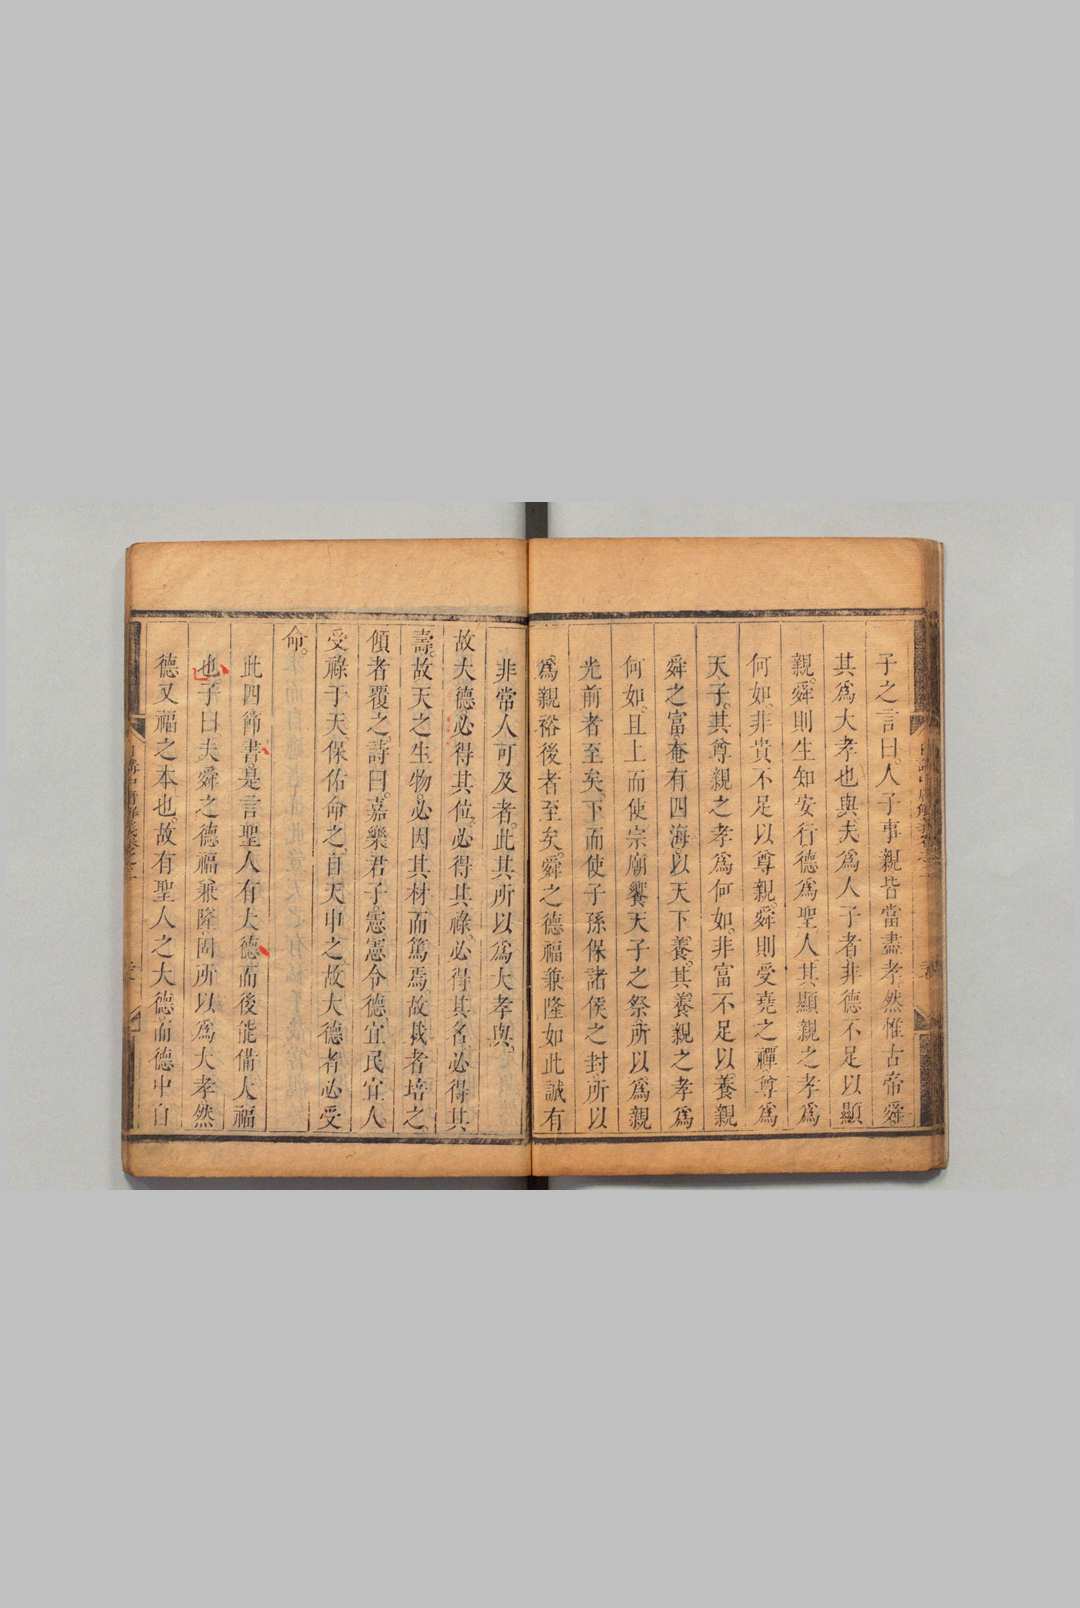 子之言曰。人子事親皆當盡孝然惟古帝舜
其爲大孝也與夫爲人子者非德不足以顯
親。舜則生知安行德爲聖人其顯親之孝爲
何如、非貴不足以尊親。舜則受堯之禪尊爲
天子。其尊親之孝爲何如。非富不足以養親
舜之富、奄有四海以天下養。其養親之孝爲
何如、且上而使宗廟饗天子之祭、所以爲親
光前者至矣、下而使子孫保諸侯之封、所以
爲親裕後者至矣、舜之德福兼隆如此誠有
非常人可及者。此其所以爲大孝與。
故大德必得其位。必得其祿、必得其名、必得其
壽。故天之生物必因其材而篤焉、故栽者培之
傾者覆之。詩曰。嘉樂君子憲憲令德、宜民宜人
受祿于天保佑命之、自天申之、故大德者必受
命。
此四節書是言聖人有大德而後能備大福
也、子曰夫舜之德福兼隆固所以爲大孝然
德又福之本也、故有聖人之大德而德中自